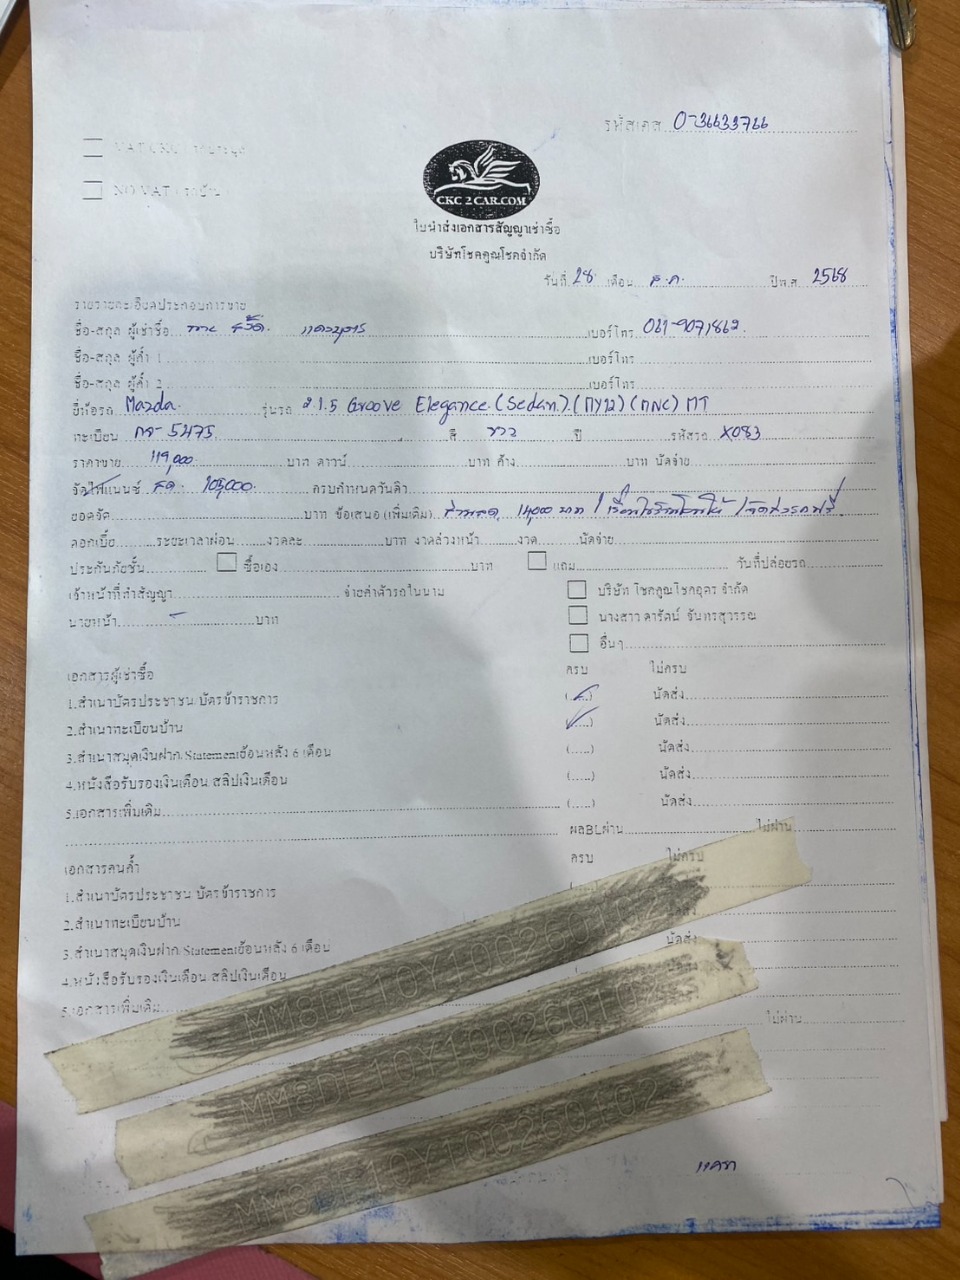 รหัสเคส 0-36633766
NO VAT
CKC 2 CAR.COM
ใบนำส่งเอกสารสัญญาเช่าซื้อ
บริษัทโชคคูณโชคจำกัด
วันที่ 28 เดือน ส.ค. ปีพ.ศ. 2568
รายรายละเอียดประกอบการขาย
ชื่อ-สกุล ผู้เช่าซื้อ เบอร์โทร 061-9071862
ชื่อ-สกุล ผู้ค้ำ 1 เบอร์โทร
ชื่อ-สกุล ผู้ค้ำ 2 เบอร์โทร
ยี่ห้อรถ Mazda รุ่นรถ 2 1.5 Groove Elegance (Sedan) (MY12) (MNC) MT
ทะเบียน 5475 สี ขาว ปี รหัสรถ X083
ราคาขาย 119,000 บาท ดาวน์ บาท ค้าง บาท นัดจ่าย
จัดไฟแนนซ์ สด 105,000 ครบกำหนดวันที่
ยอดจัด บาท ข้อเสนอ (เพิ่มเติม) ส่วนลด 14,000 บาท
ดอกเบี้ย ระยะเวลาผ่อน งวดละ บาท งวดล่วงหน้า งวด นัดจ่าย
ประกันภัยชั้น ซื้อเอง บาท แถม วันที่ปล่อยรถ
เจ้าหน้าที่ทำสัญญา จ่ายค่าตัวรถในนาม บริษัท โชคคูณโชคอุดร จำกัด
นายหน้า - บาท นางสาว ดารัตน์ จันทรสุวรรณ
อื่นๆ
เอกสารผู้เช่าซื้อ ครบ ไม่ครบ
1.สำเนาบัตรประชาชน บัตรข้าราชการ (✓) นัดส่ง
2.สำเนาทะเบียนบ้าน (✓) นัดส่ง
3.สำเนาสมุดเงินฝาก Statementย้อนหลัง 6 เดือน (.....) นัดส่ง
4.หนังสือรับรองเงินเดือน สลิปเงินเดือน (.....) นัดส่ง
5.เอกสารเพิ่มเติม (.....) นัดส่ง
ผลBLผ่าน ไม่ผ่าน
เอกสารคนค้ำ ครบ ไม่ครบ
1.สำเนาบัตรประชาชน บัตรข้าราชการ
2.สำเนาทะเบียนบ้าน
3.สำเนาสมุดเงินฝาก Statementย้อนหลัง 6 เดือน นัดส่ง
4.หนังสือรับรองเงินเดือน สลิปเงินเดือน
5.เอกสารเพิ่มเติม
ไม่ผ่าน
MM8DE10Y100260102
MM8DE10Y100260102
MM8DE10Y100260102